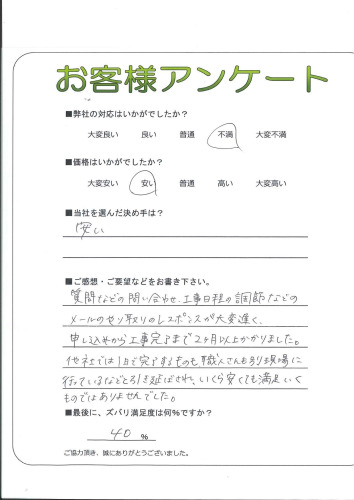 お客様アンケート
■弊社の対応はいかがでしたか？
大変良い 良い 普通 不満 大変不満
■価格はいかがでしたか？
大変安い 安い 普通 高い 大変高い
■当社を選んだ決め手は？
安い
■ご感想・ご要望などをお書き下さい。
質問などの問い合わせ、工事日程の調節などの
メールのやり取りのレスポンスが大変遅く、
申し込みから工事完了まで2ヶ月以上かかりました。
他社では1日で完了するものも職人さんも別現場に
行っているなどと引き延ばされ、いくら安くても満足いく
ものではありませんでした。
■最後に、ズバリ満足度は何%ですか？
40 %
ご協力頂き、誠にありがとうございました。